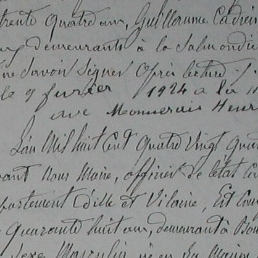 trente quatre ans, Guillaume
demeurants à la
savoir signer après lecture
le 9 février 1924 à la
avec Monnerais Henr
L'an Mil huit cent quatre vingt qua
vant nous Maire, officier de l'état
partement d'Ille et Vilaine, Est
quarante huit ans, demeurant à
sexe Masculin né en